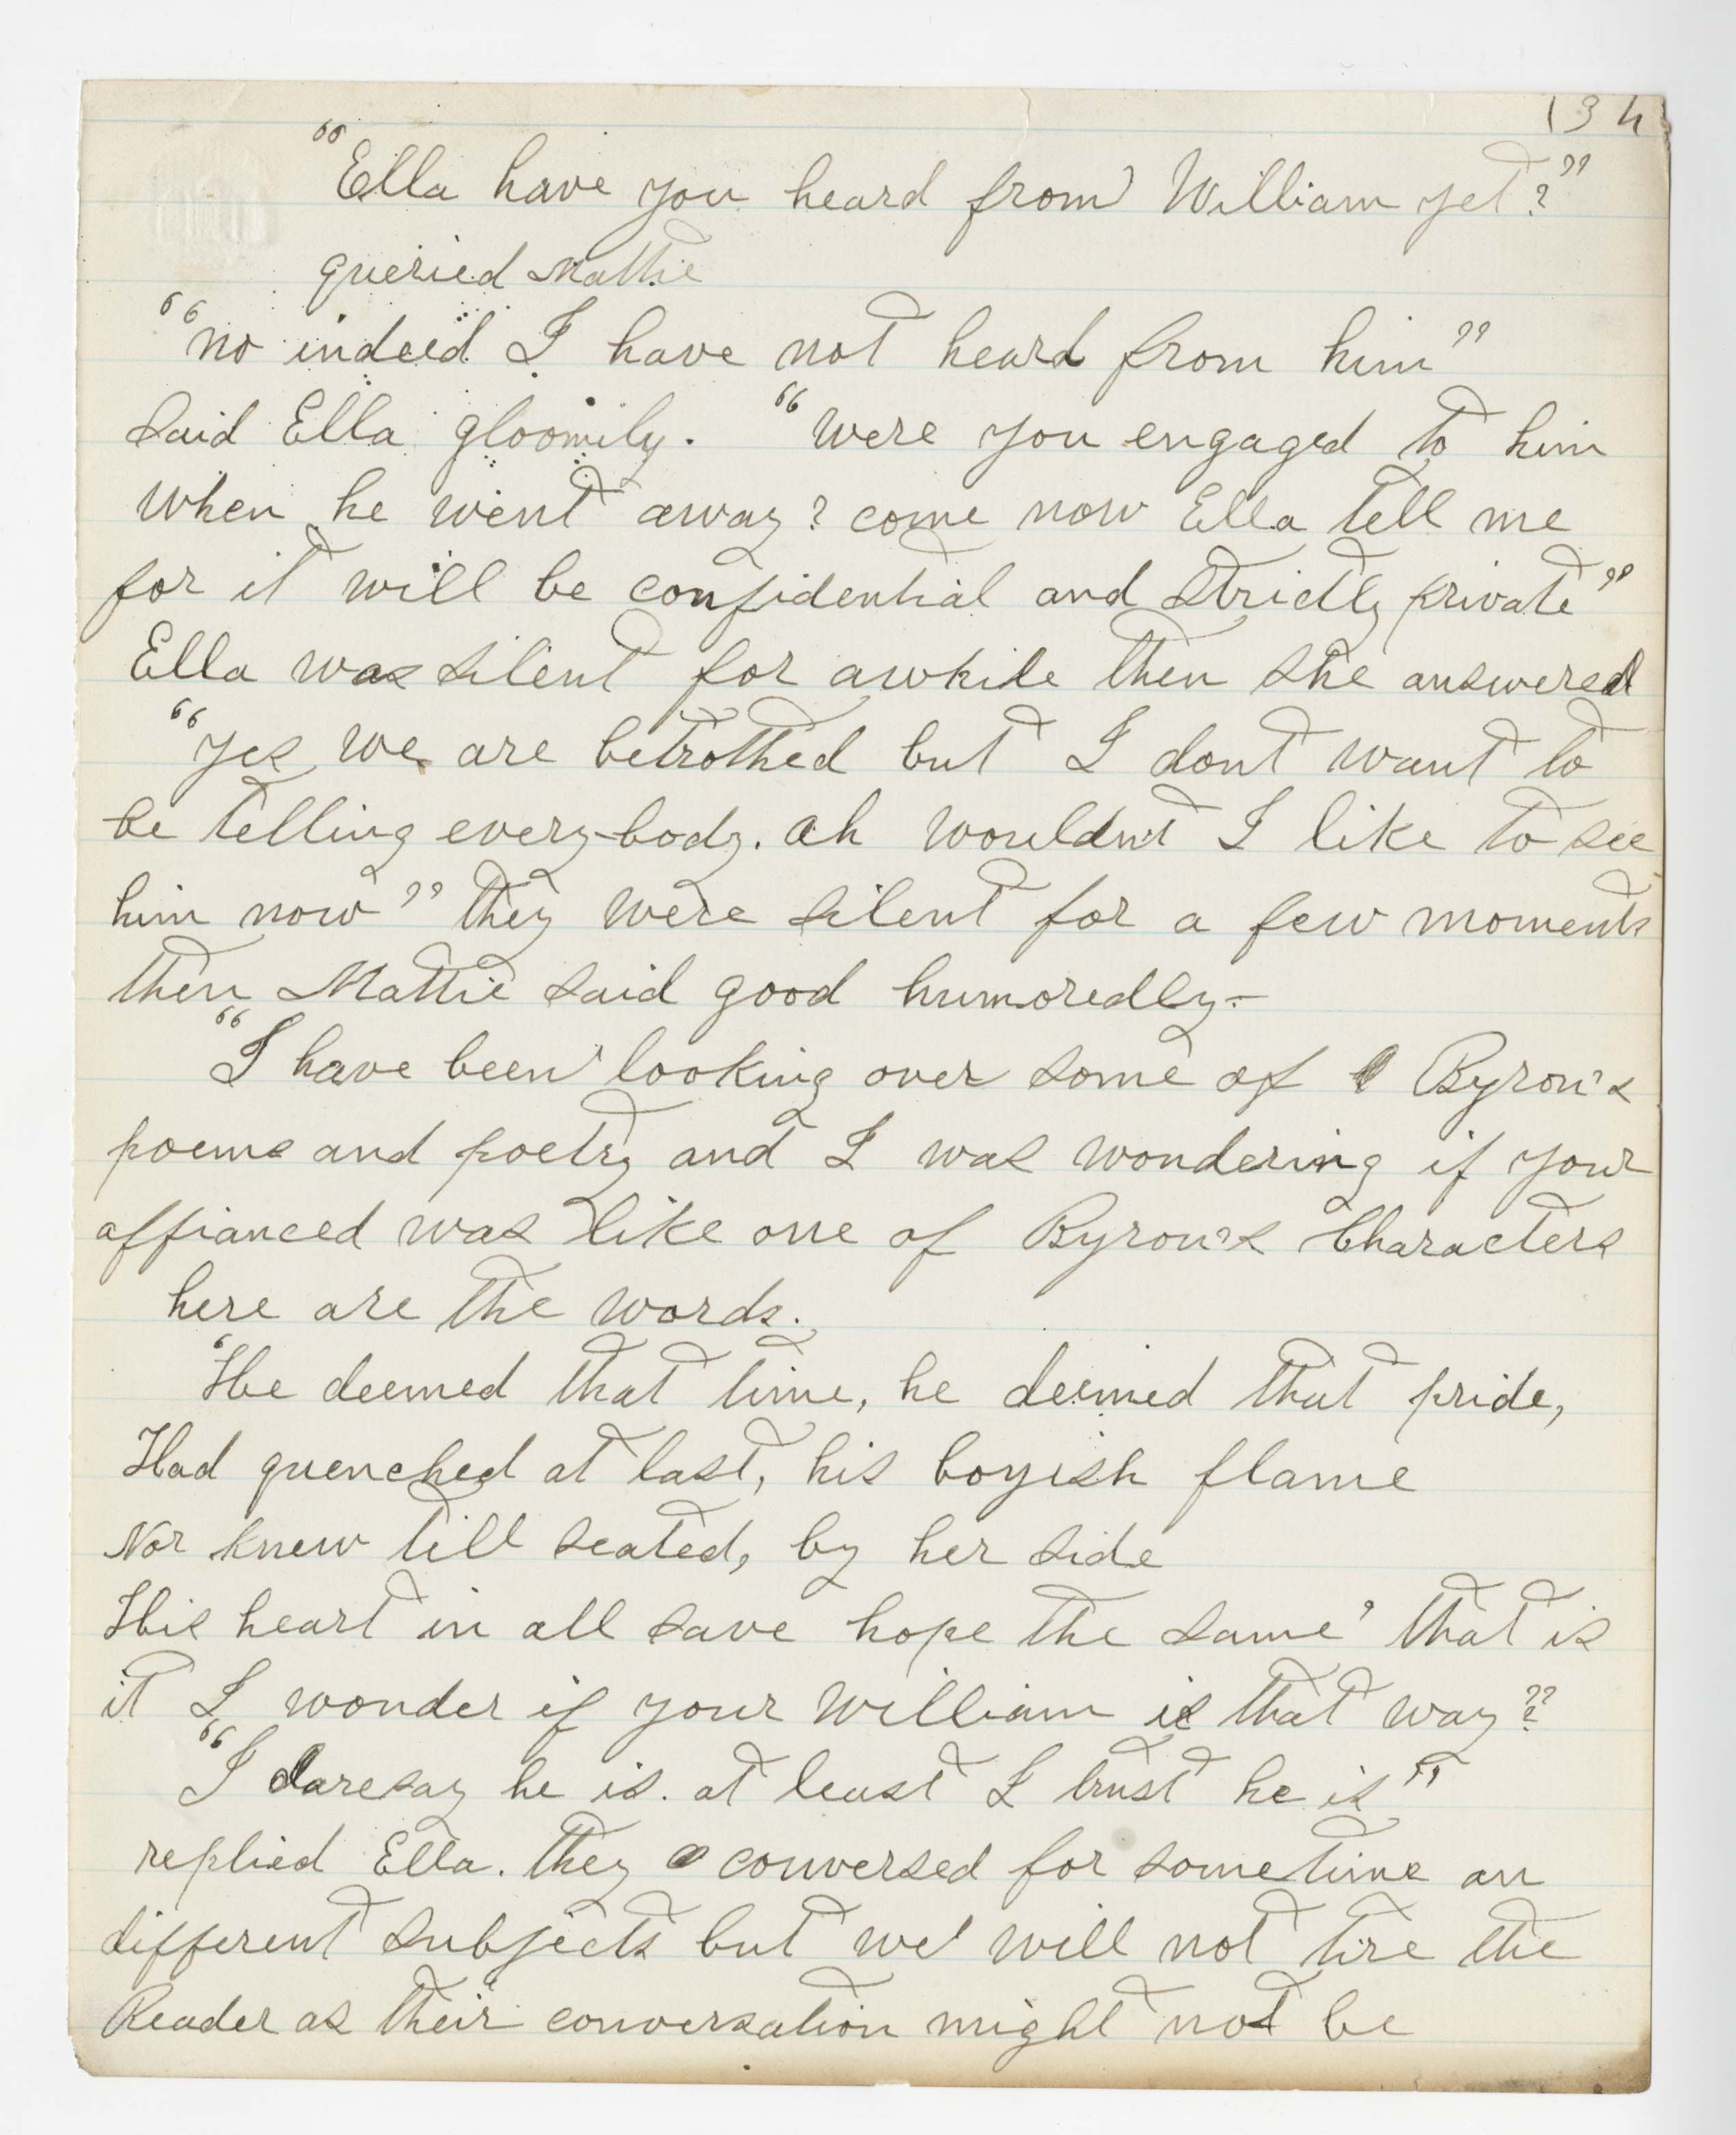 134
"Ella have you heard from William yet?"
queried Mattie
"no indeed I have not heard from him"
said Ella gloomily. "Were you engaged to him
when he went away? come now Ella tell me
for it will be confidential and strictly private"
Ella was silent for awhile then she answered
"Yes we are betrothed but I dont want to
be telling every-body. ah wouldnt I like to see
him now" they were silent for a few moments
then Mattie said good humoredly-
"I have been looking over some of Byron's
poems and poetry and I was wondering if your
affianced was like one of Byron's Characters
here are the words.
'He deemed that time, he deemed that pride,
Had quenched at last, his boyish flame
Nor knew till seated, by her side
His heart in all save hope the same' that is
it I wonder if your William is that way?"
"I daresay he is. at least I trust he is"
replied Ella. they conversed for sometime on
different subjects but we will not tire the
Reader as their conversation might not be